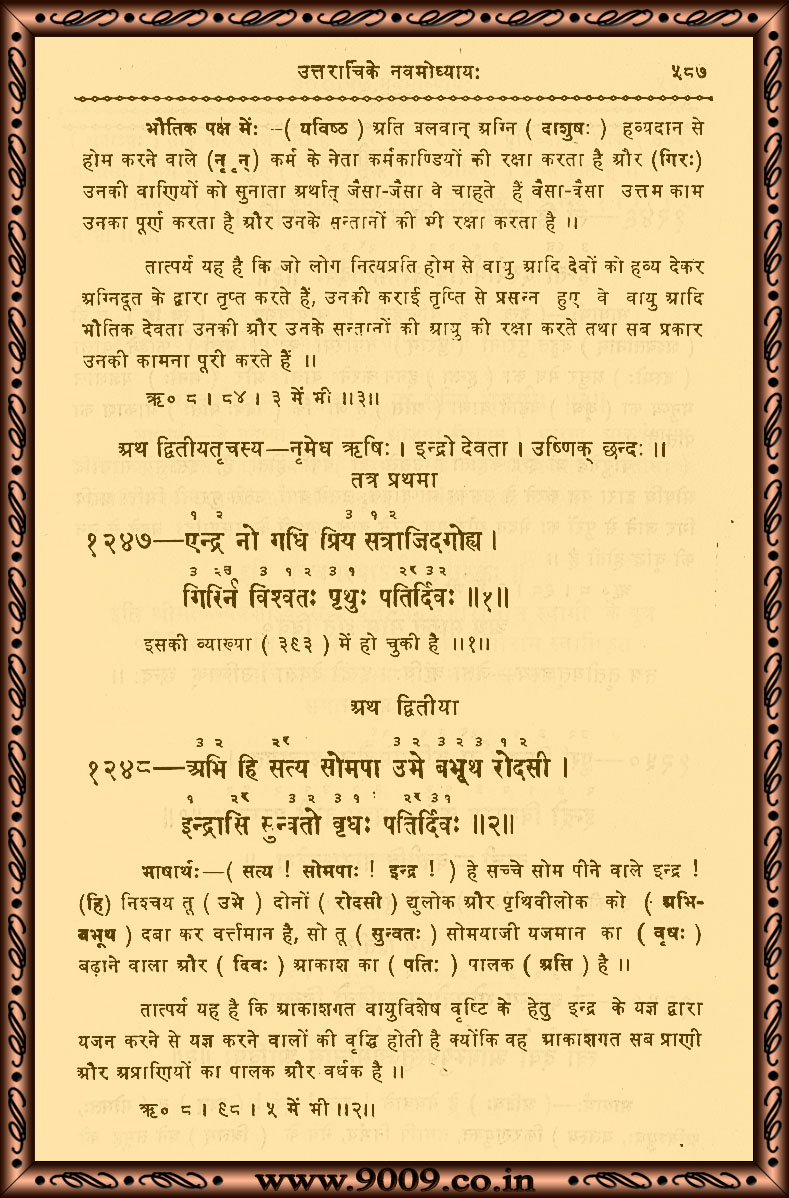 उत्तरार्चिके नवमोध्यायः ५८७
भौतिक पक्ष में: –( यविष्ठ ) अति बलवान् अग्नि ( दाशुषः ) हव्यदान से
होम करने वाले (नॄन्) कर्म के नेता कर्मकाण्डियों की रक्षा करता है और (गिरः)
उनकी वाणियों को सुनाता अर्थात् जैसा-जैसा वे चाहते हैं वैसा-वैसा उत्तम काम
उनका पूर्ण करता है और उनके सन्तानों की भी रक्षा करता है ।।
तात्पर्य यह है कि जो लोग नित्यप्रति होम से वायु आदि देवों को हव्य देकर
अग्निदूत के द्वारा तृप्त करते हैं, उनकी कराई तृप्ति से प्रसन्न हुए वे वायु आदि
भौतिक देवता उनकी और उनके सन्तानों की आयु की रक्षा करते तथा सब प्रकार
उनकी कामना पूरी करते हैं ।।
ऋ० ८ । ८४ । ३ में भी ।।३।।
अथ द्वितीयतृचस्य—नृमेध ऋषिः । इन्द्रो देवता । उष्णिक् छन्दः ।।
तत्र प्रथमा
१ २ ३ १ २
१२४७—एन्द्र नो गधि प्रिय सत्राजिदगोह्य ।
३ २उ ३ १ २ ३ १ २र ३ २
गिरिर्न विश्वतः पृथुः पतिर्दिवः ।।१।।
इसकी व्याख्या ( ३९३ ) में हो चुकी है ।।१।।
अथ द्वितीया
३ २ २र ३ २ ३ २ ३ १ २
१२४८—अभि हि सत्य सोमपा उभे बभूथ रोदसी ।
१ २र ३ २ ३ १ २र ३ १
इन्द्रासि सुन्वतो वृधः पतिर्दिवः ।।२।।
भाषार्थः—( सत्य ! सोमपाः ! इन्द्र ! ) हे सच्चे सोम पीने वाले इन्द्र !
(हि) निश्चय तू ( उभे ) दोनों ( रोदसी ) द्युलोक और पृथिवीलोक को ( अभि-
बभूथ ) दबा कर वर्त्तमान है, सो तू ( सुन्वतः ) सोमयाजी यजमान का ( वृधः )
बढ़ाने वाला और ( दिवः ) आकाश का ( पतिः ) पालक ( असि ) है ।।
तात्पर्य यह है कि आकाशगत वायुविशेष वृष्टि के हेतु इन्द्र के यज्ञ द्वारा
यजन करने से यज्ञ करने वालों की वृद्धि होती है क्योंकि वह आकाशगत सब प्राणी
और अप्राणियों का पालक और वर्धक है ।।
ऋ० ८ । ९८ । ५ में भी ।।२।।
www.9009.co.in